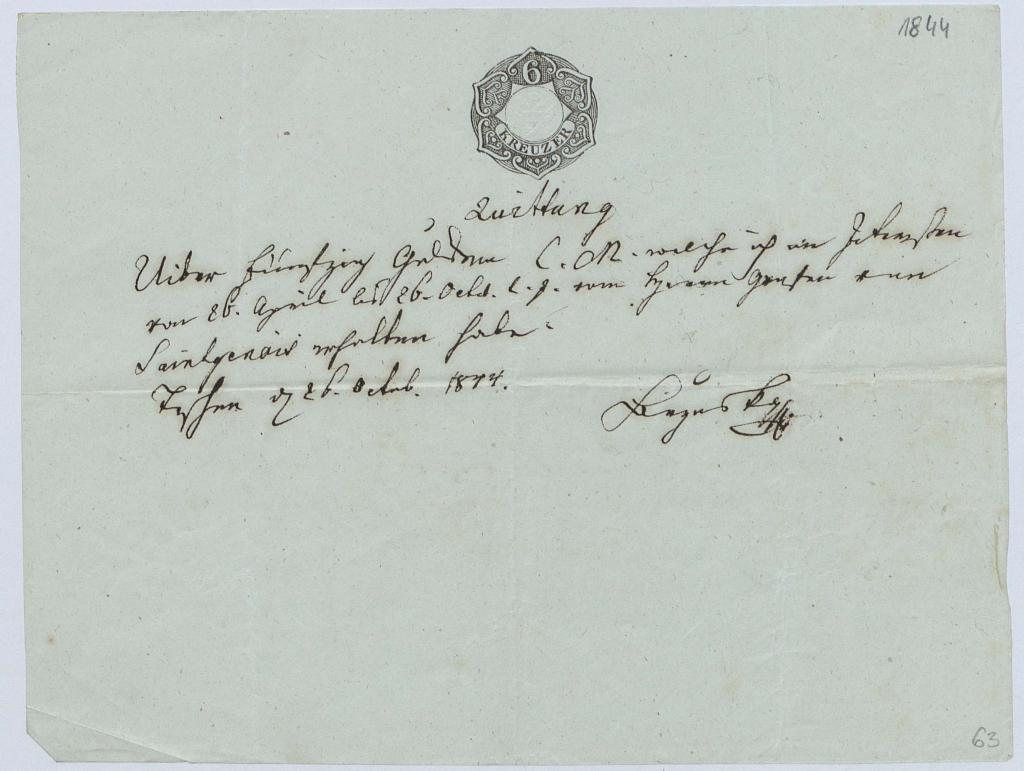 1844
6
KREUZER
Quittung
Uiber Fünfzig Gulden C. M. welche ich an Interessen
von 26. April bis 26. Octob. l. J. vom Herrn Grafen von
Saintgenois erhalten habe.
Teschen d 26. Octob. 1844.
63